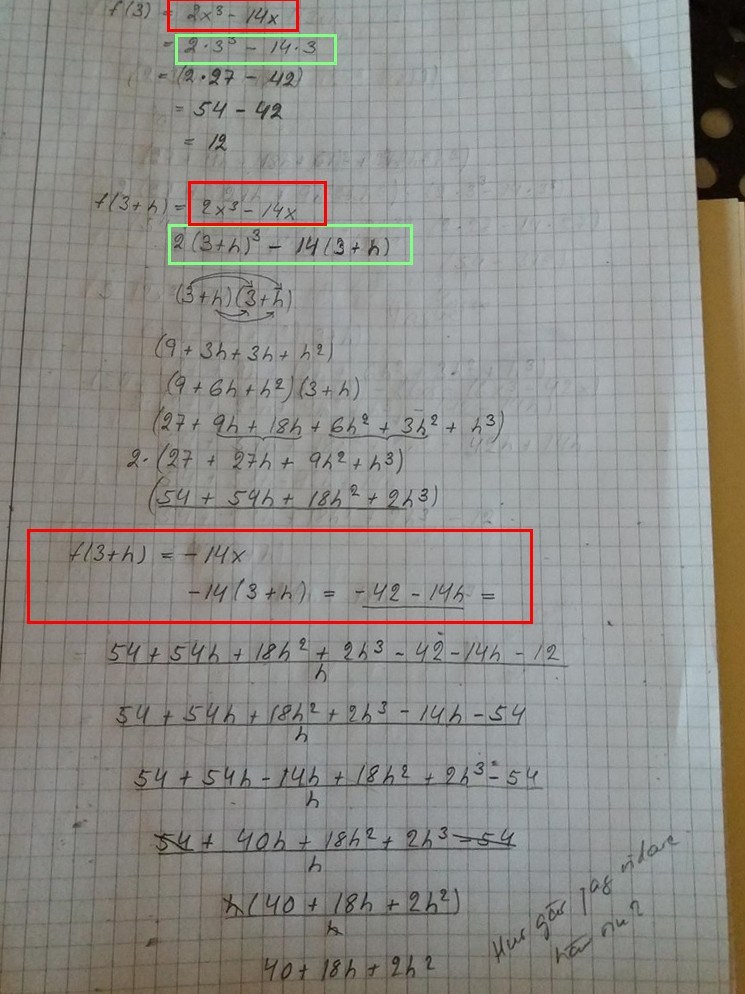 f(3) = 2x³ - 14x
= 2·3³ - 14·3
= (2·27 - 42)
= 54 - 42
= 12
f(3+h) = 2x³ - 14x
2(3+h)³ - 14(3+h)
(3+h)(3+h)
(9 + 3h + 3h + h²)
(9 + 6h + h²)(3+h)
(27 + 9h + 18h + 6h² + 3h² + h³)
2·(27 + 27h + 9h² + h³)
(54 + 54h + 18h² + 2h³)
f(3+h) = -14x
-14(3+h) = -42 - 14h =
54 + 54h + 18h² + 2h³ - 42 - 14h - 12
h
54 + 54h + 18h² + 2h³ - 14h - 54
h
54 + 54h - 14h + 18h² + 2h³ - 54
h
54 + 40h + 18h² + 2h³ - 54
h
h(40 + 18h + 2h²)
h
Hur går jag vidare
här nu?
40 + 18h + 2h²